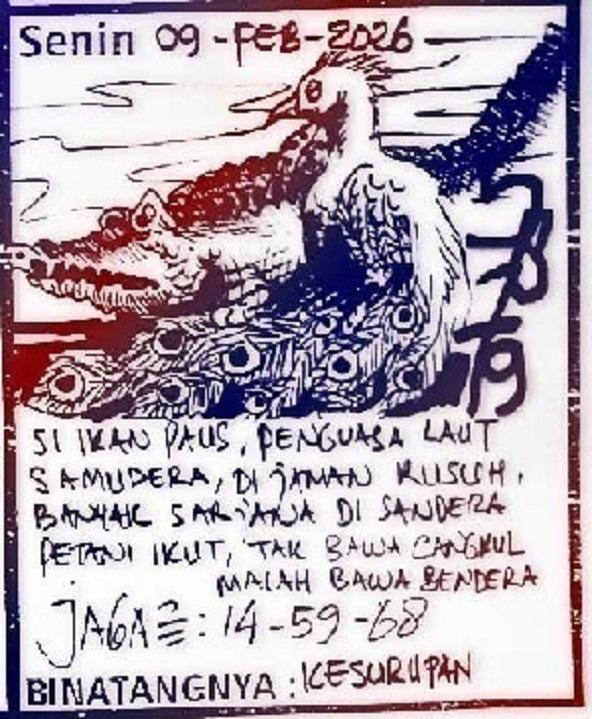 Senin 09-FEB-2026
SI IKAN PAUS, PENGUASA LAUT
SAMUDERA, DI JAMAN RUSUH,
BANYAK SARJANA DI SANDERA
PETANI IKUT, TAK BAWA CANGKUL
MALAH BAWA BENDERA
JAGA2 : 14-59-68
BINATANGNYA : KESURUPAN